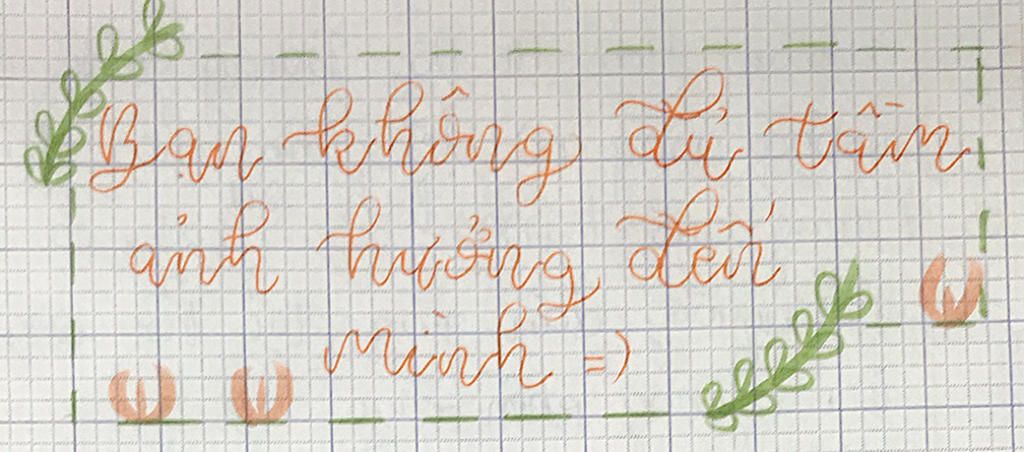 Bạn không đủ tầm
ảnh hưởng đến
mình =)